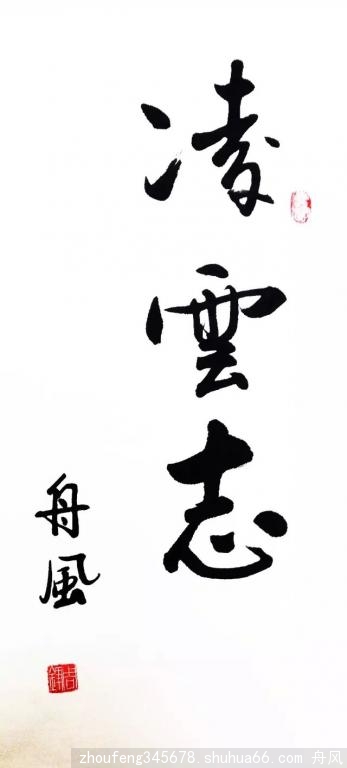 凌雲志
舟風
zhoufeng345678.shuhua66.com 舟风